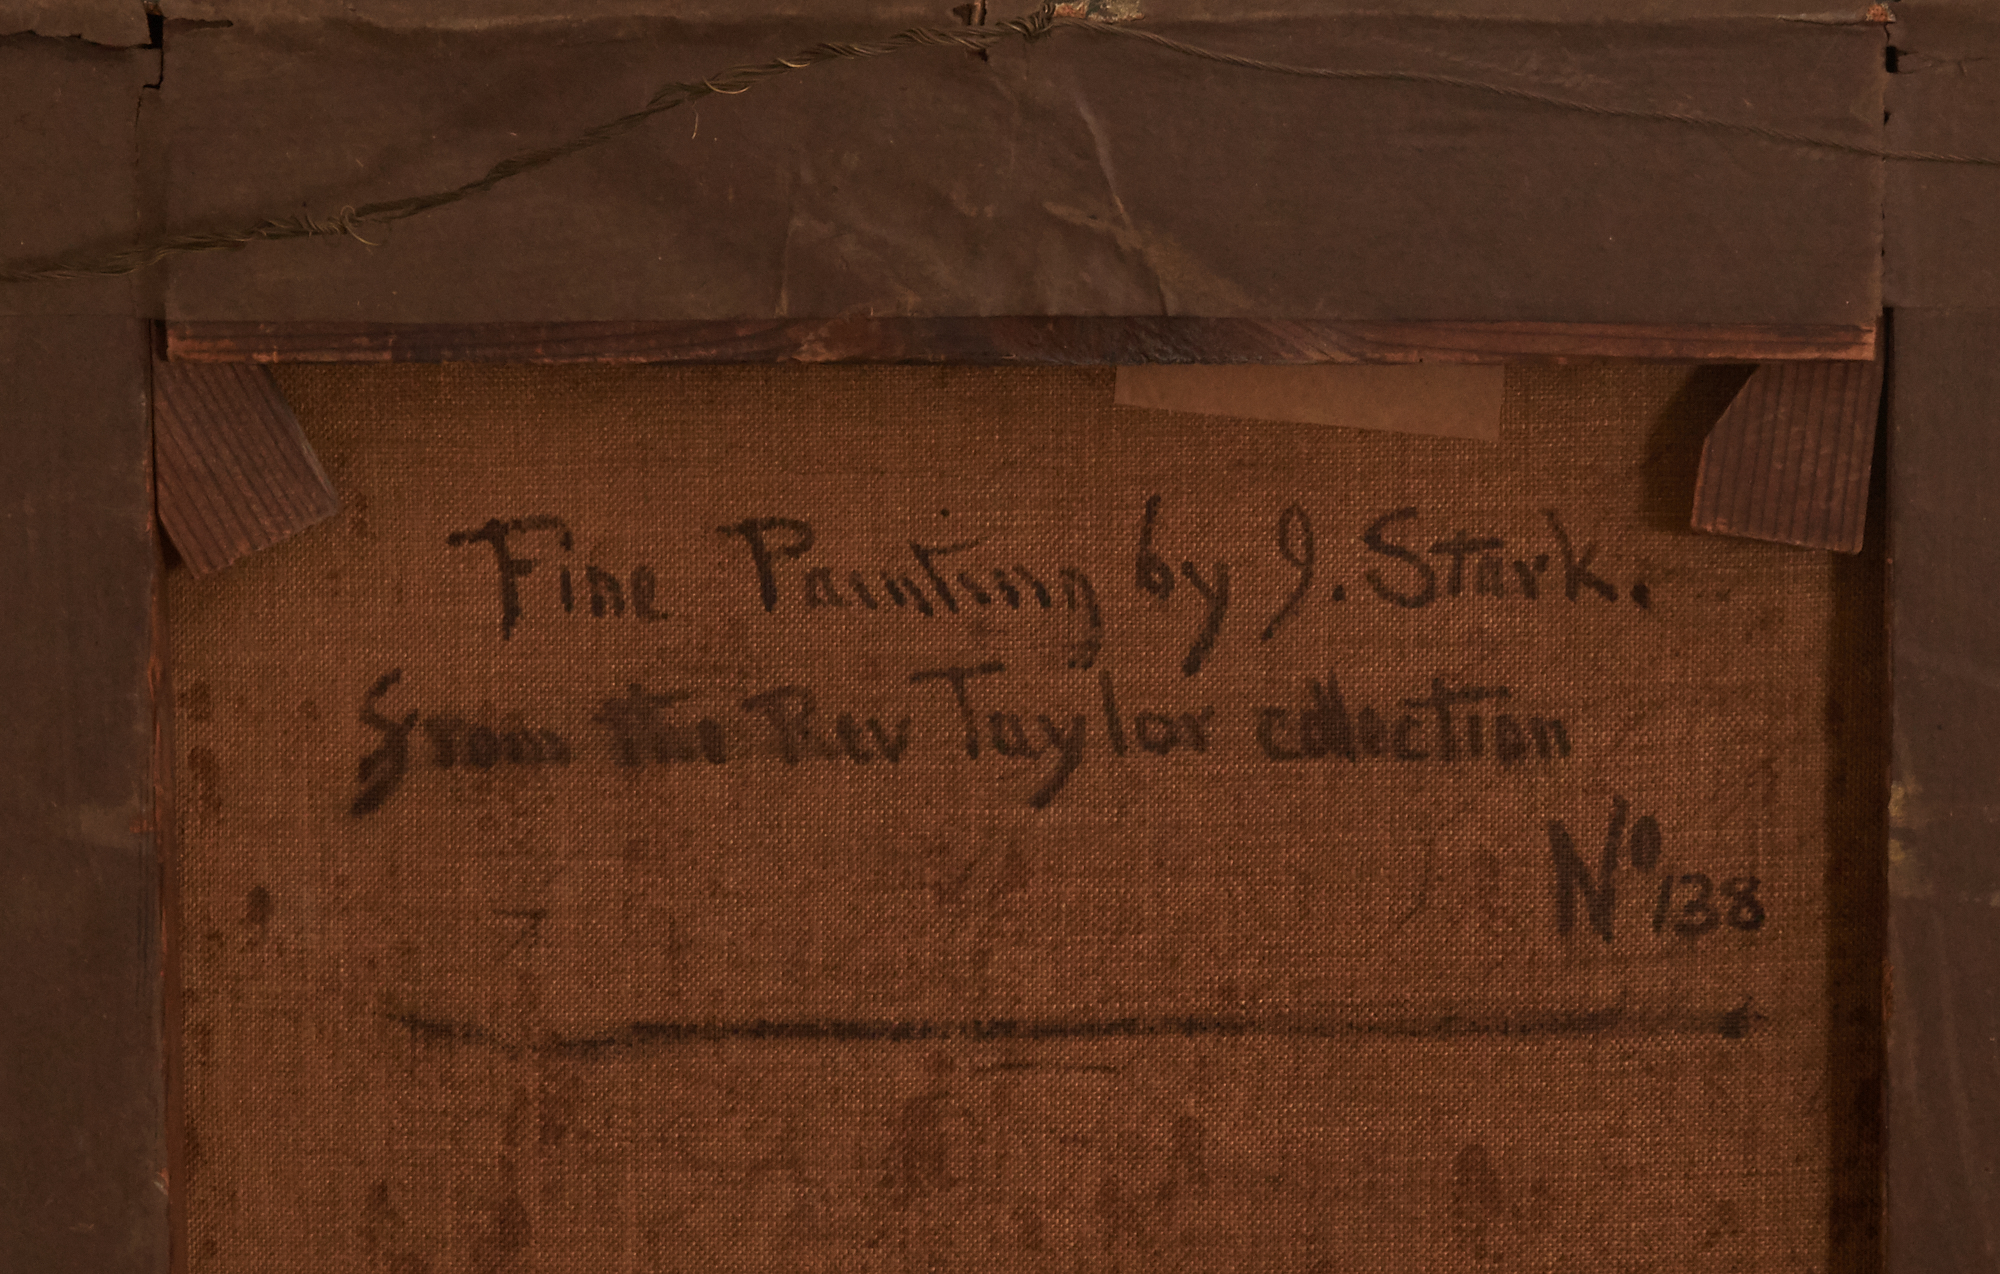 Fine Painting by J. Stark.
from the Rev Taylor collection
No 138